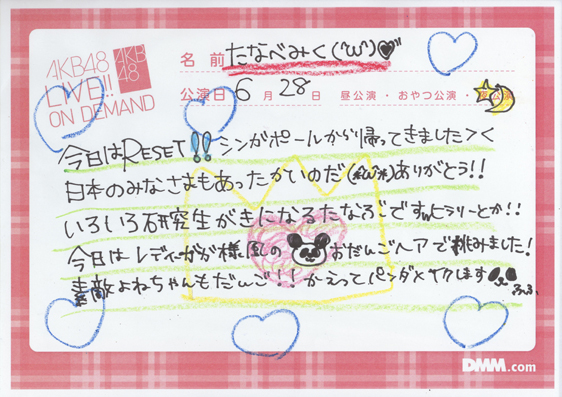 AKB48
LIVE!!
ON DEMAND
AKB
48
名前 たなべみく('ω')
公演日 6月28日 昼公演・おやつ公演・夜公演
今日はRESET!! シンガポールから帰ってきました><
日本のみなさまもあったかいのだ(*'ω'*)ありがとう!!
いろいろ研究生がきになるたなろごですwヒラリーとか!!
今日はレディーガガ様風の おだんごヘアで挑みました!
素敵よねちゃんもだんご!! かえってパンダメヤクします ふふ、
DMM.com